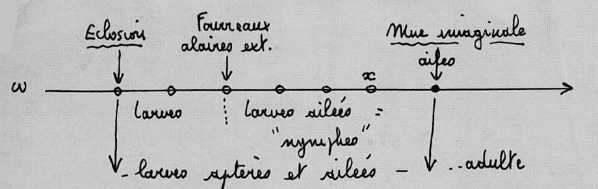 Eclosion
Fourreaux
alaires ext.
Mue imaginale
ailes
ω
x
larves
larves ailées =
"nymphes"
- larves aptères et ailées -
..adulte